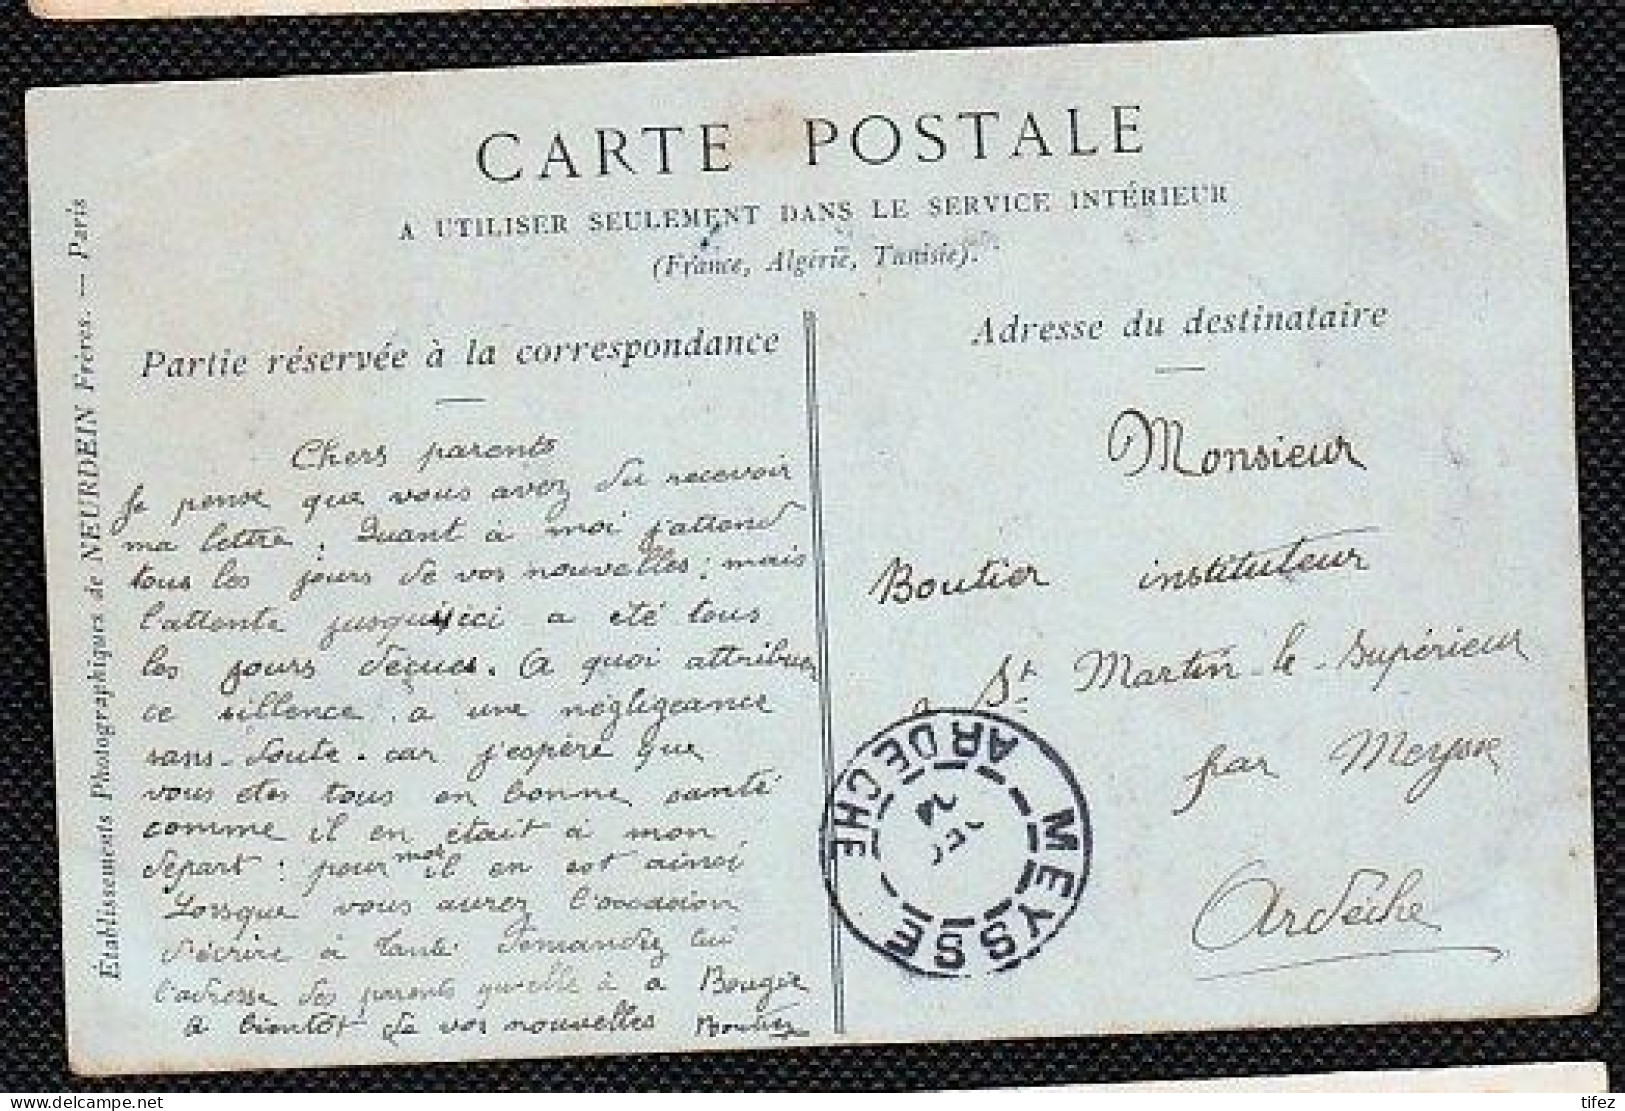 CARTE POSTALE
A UTILISER SEULEMENT DANS LE SERVICE INTÉRIEUR
(France, Algérie, Tunisie).
Établissements Photographiques de NEURDEIN Frères. — Paris
Partie réservée à la correspondance
Chers parents
Je pense que vous avez du recevoir
ma lettre. Quant à moi j'attend
tous les jours de vos nouvelles; mais
l'attente jusqu'ici a été tous
les jours déçue. A quoi attribuer
ce sillence. a une négligeance
sans-doute. car j'espère que
vous êtes tous en bonne santé
comme il en était à mon
départ: pour moi il en est ainsi
Lorsque vous aurez l'occasion
d'écrire à tante demandez lui
l'adresse des parents qu'elle à a Bougie
a bientôt de vos nouvelles Boutier
Adresse du destinataire
Monsieur
Boutier instituteur
a St Martin-le-supérieur
par Meysse
Ardèche
MEYSSE ARDECHE